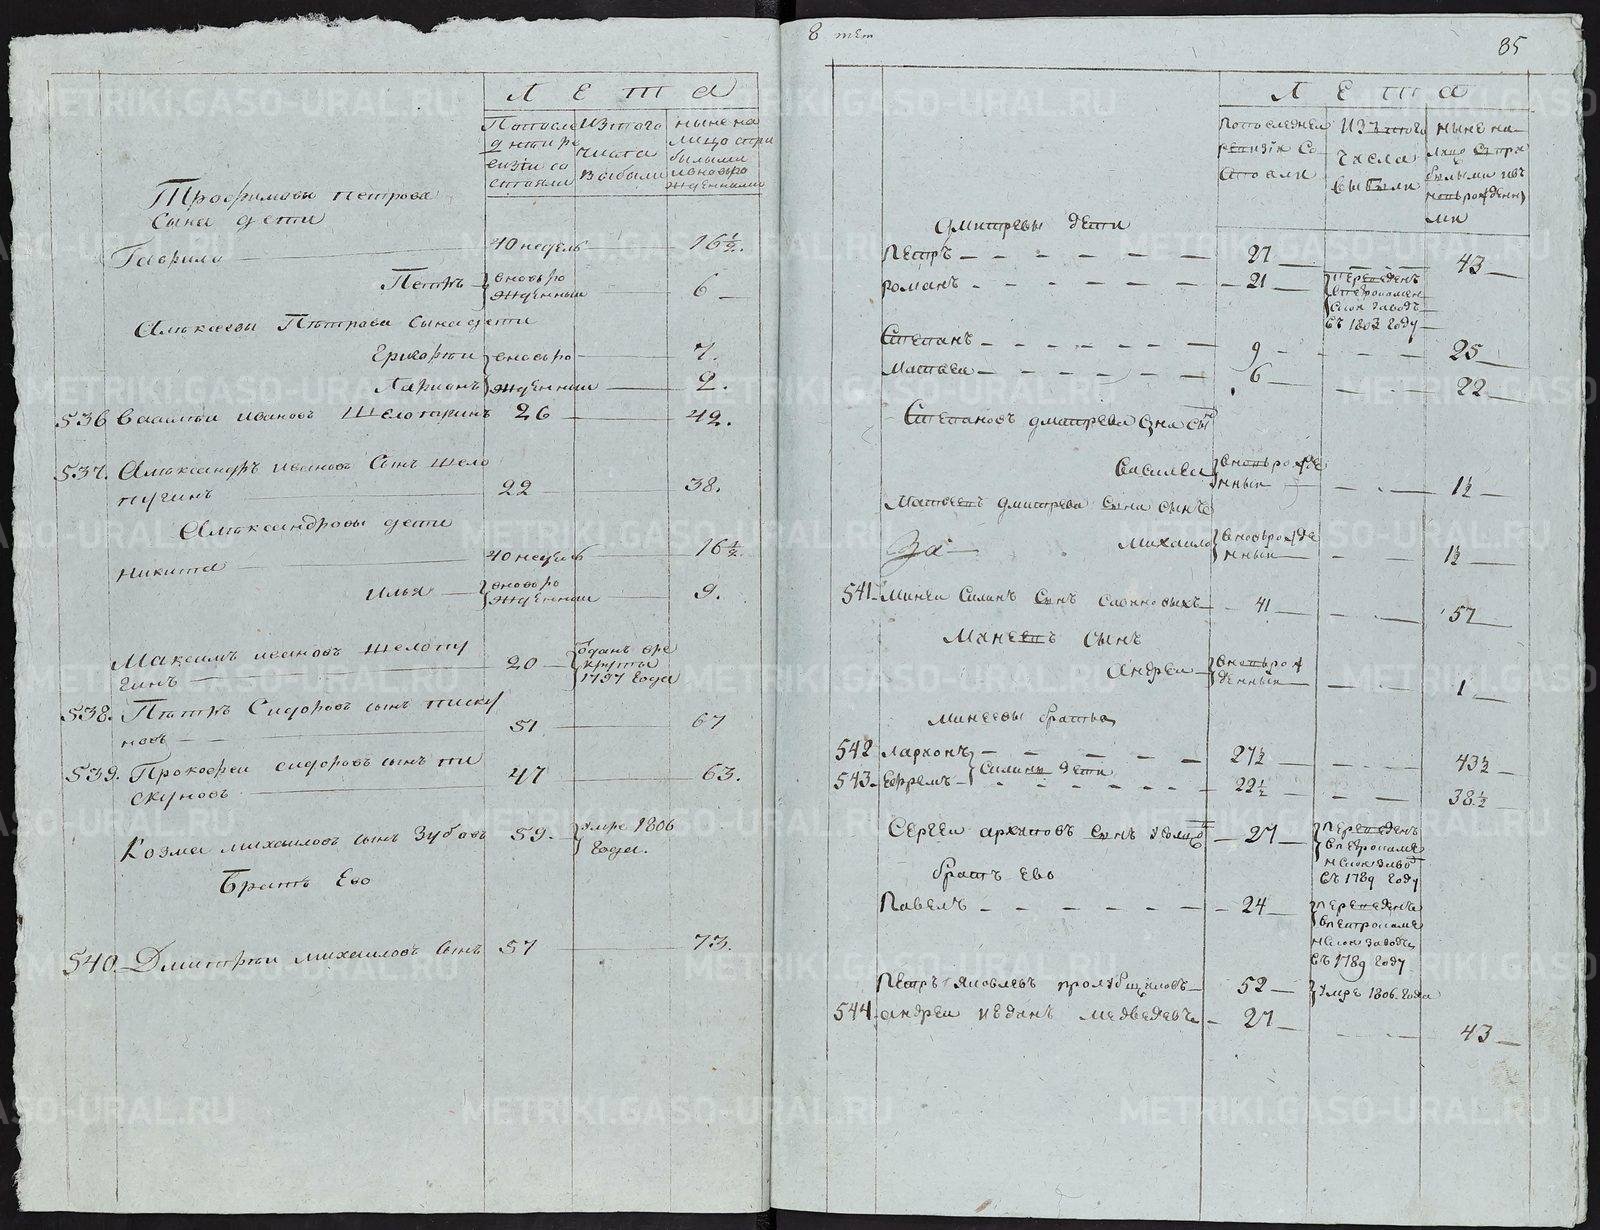 Л Е Т А
По после
дней ре
визiи со
стояли
Из того
числа
выбыли
ныне на
лицо с при
былыми
и вновь ро
жденными
Трофимовы Петрова
Сына дети
Гаврило 40 недель 16 ½.
Петръ вновь ро
жденный 6
Алексеевы Петрова Сына дети
Григорий вновь ро 7.
Ларионъ жденныи 2.
536 Василеи Ивановъ Шелопугинъ 26 42.
537. Александръ Ивановъ Сынъ Шело
пугинъ 22 38.
Александровы дети
Никита 40 недель 16 ½.
Илья вновь ро
жденныи 9.
Максимъ Ивановъ Шелопу
гинъ 20 Отданъ в ре
круты
1797 Года
538. Петръ Сидоровъ сынъ Писку
новъ 51 67
539. Прокофеи Сидоровъ сынъ Пи
скуновъ 47 63.
Козма Михаиловъ сынъ Зубовъ 59. умре 1806
Года.
Братъ Ево
540. Дмитреи Михаиловъ Сынъ 57 73.
8 тет
85
Л Е Т А
По последнеи
ревизiи Со
стояли
Из того
числа
выбыли
ныне на
лицо с при
былыми и в
новь рожденны
ми
Дмитревы дети
Петръ 27 43
Романъ 21 переведенъ
в Петрокамен
скои заводъ
въ 1803 году
Степанъ 9 25
Матвеи 6 22
Степановъ Дмитрева Сна сынъ
Василеи вновь рожде
нныи 1½
Матвеевъ Дмитрева Сына сынъ
За
Михаило вновь рожде
нныи 1½
541. Минеи Силинъ Сынъ Слонновыхъ 41 57
Манеевъ сынъ
Андреи вновь рож
денныи 1
Минеевы братья
542 Ларионъ 27½ 43½
Силины дети
543. Ефремъ 22½ 38½
Сергеи Архиповъ Сынъ 27 переведенъ
в Петрокаме
нскои завод
въ 1789 году
братъ ево
Павелъ 24 переведенъ
в Петрокаме
нскои заводъ
въ 1789 году
Петръ Яковлевъ Пролубщиковъ 52 умре 1806. Года
544. Андреи Иванъ Медведевъ 27 43